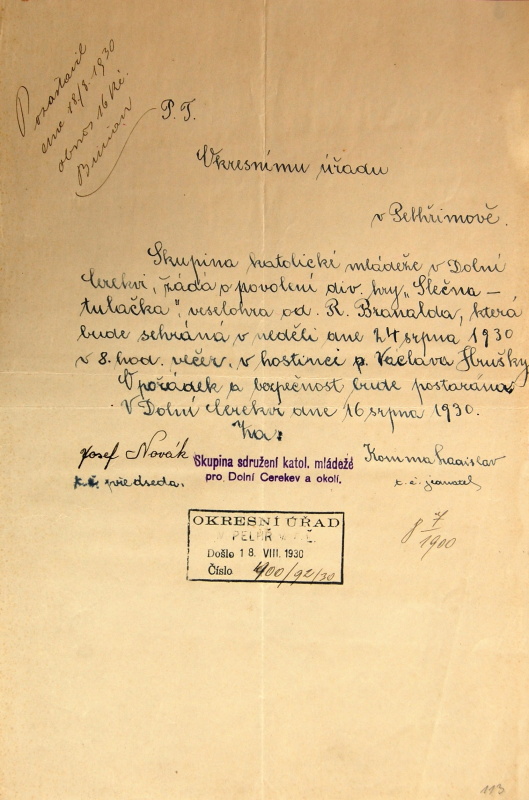 dne 18/8 1930
obnos 16 Kč.
P. T.
Okresnímu úřadu
v Pelhřimově.
Skupina katolické mládeže v Dolní
Cerekvi, žádá o povolení div. hry „Slečna –
tulačka", veselohra od R. Branalda, která
bude sehrána v neděli dne 24 srpna 1930
v 8. hod. večer, v hostinci p. Václava Hrušky
O pořádek a bezpečnost bude postaráno.
V Dolní Cerekvi dne 16 srpna 1930.
Za:
Josef Novák
t. č. předseda.
Skupina sdružení katol. mládeže
pro Dolní Cerekev a okolí.
Komma
t. č. jednatel
OKRESNÍ ÚŘAD
PELHŘ
Došlo 18. VIII. 1930
Číslo 400/92/30
7
1900
113